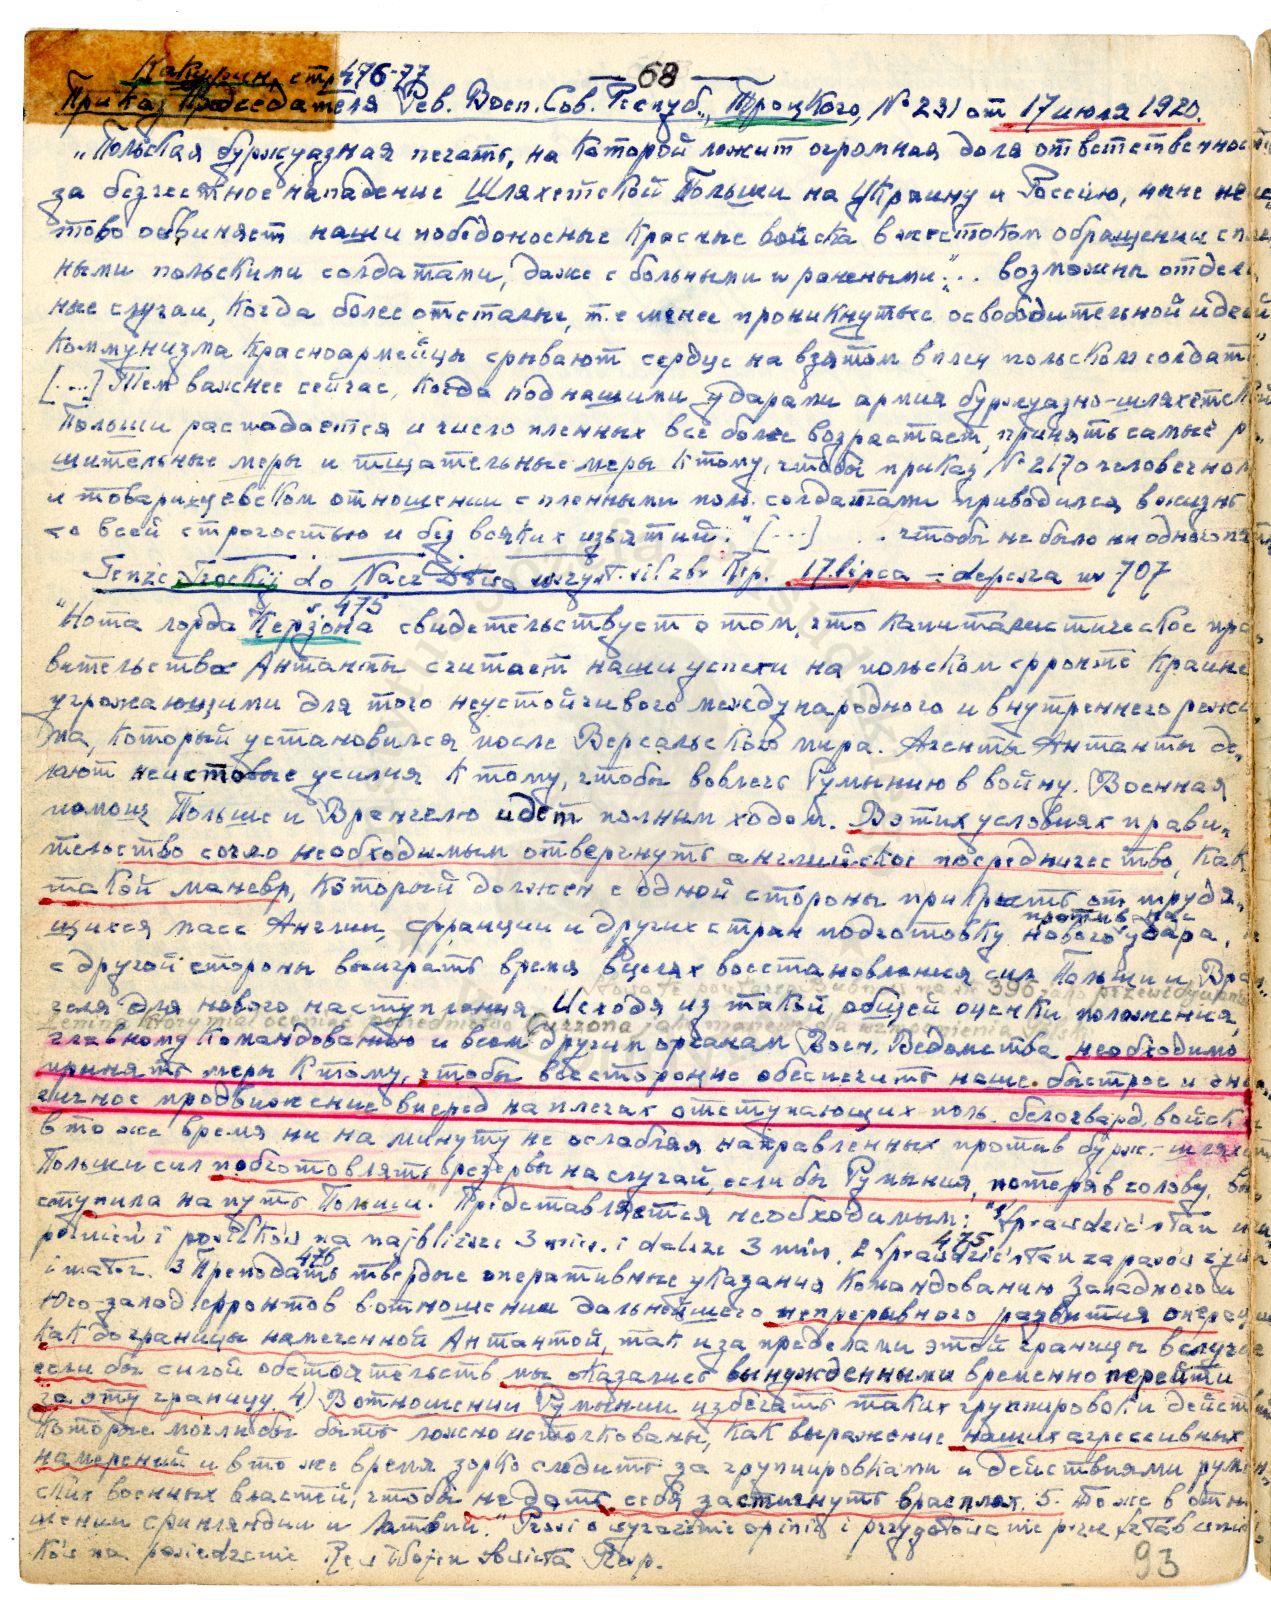 Какурин, стр 476-77
68
Приказ Председателя Рев. Воен. Сов. Респуб., Троцкого, № 231 от 17 июля 1920.
„Польская буржуазная печать, на которой лежит огромная доля ответственнос
за безчестное нападение Шляхетской Польши на Украину и Россию, ныне неис-
тово обвиняет наши победоносные красные войска в жестоком обращении с плен
ными польскими солдатами, даже с больными и ранеными"... возможны отдель
ные случаи, когда более отсталые, т.е менее проникнутые освободительной идеей
коммунизма красноармейцы срывают сердце на взятом в плен польском солдате"
[...] Тем важнее сейчас, когда под нашими ударами армия буржуазно-шляхетской
Польши распадается и число пленных всё более возрастает, принять самые р
шительные меры и тщательные меры к тому, чтобы приказ № 217 о человечном
и товарищевском отношении с пленными поль. солдатами приводился в жизнь
со всей строгостью и без всяких изъятий." [...] .. чтобы не было ни одного
Tenże Trockij do Nacz Dtwa wszyst. sil zbr Rep. 17. lipca – depesza nr 707
s. 475
"Нота лорда Керзона свидетельствует о том, что капиталистическое пра
вительство Антанты считает наши успехи на польском фронте крайне
угрожающими для того неустойчивого международного и внутреннего режи
ма, который установился после Версальского мира. Агенты Антанты де-
лают неистовые усилия к тому, чтобы вовлечь Румынию в войну. Военная
помощ Польше и Врангелю идет полным ходом. В этих условиях прави-
тельство сочло необходимым отвергнуть английское посредничество, как
такой маневр, который должен с одной стороны прикрыть от трудя-
щихся масс Англии, Франции и других стран подготовку нового удара,
против нас
с другой стороны выиграть время в целях восстановления сил Польши и Вран
396 jako przewidywania
геля для нового наступления. Исходя из такой общей оценки положения,
Lenina który miał ocenić pośrednictwo Curzona jako manewr dla wzmocnienia
главному командованию и всем другим органам Воен. Ведомства необходимо
принять меры к тому, чтобы всесторонне обеспечить наше быстрое и энер
гичное продвижение вперед на плечах отступающих поль. белогвард. войск
в то же время ни на минуту не ослабляя направленных против бурж.-шляхет
Польши сил подготовлять резервы на случай, если бы Румыния, потеряв голову, в
ступила на путь Польши". Представляется необходимым: "1/ Sprawdzić stan uzu
pełnień i posiłków na najbliższe 3 mies. i dalsze 3 mies. 2 Sprawdzić stan zapasów żywn
475
i mater. 3 Преподать твердые оперативные указания командованию Западного и
476
Юго-запад фронтов в отношении дальнейшего непрерывного развития опера
как до границы намеченной Антантой, так и за пределами этой границы в случае
если бы силой обстоятельств мы оказались вынужденными временно перейти
за эту границу. 4) В отношении Румынии избегать таких группировок и дейст
которые могли бы быть ложно истолкованы, как выражение наших агрессивных
намерений и в то же время зорко следить за группировками и действиями румын-
ских военных властей, чтобы не дать себя застигнуть врасплох. 5. То же в отно
шении Финляндии и Латвии." Prosi o wyrażenie opinii i przygotowanie przez sztab wnios
ków na posiedzenie Rew Wojen Sowieta Rep.
93